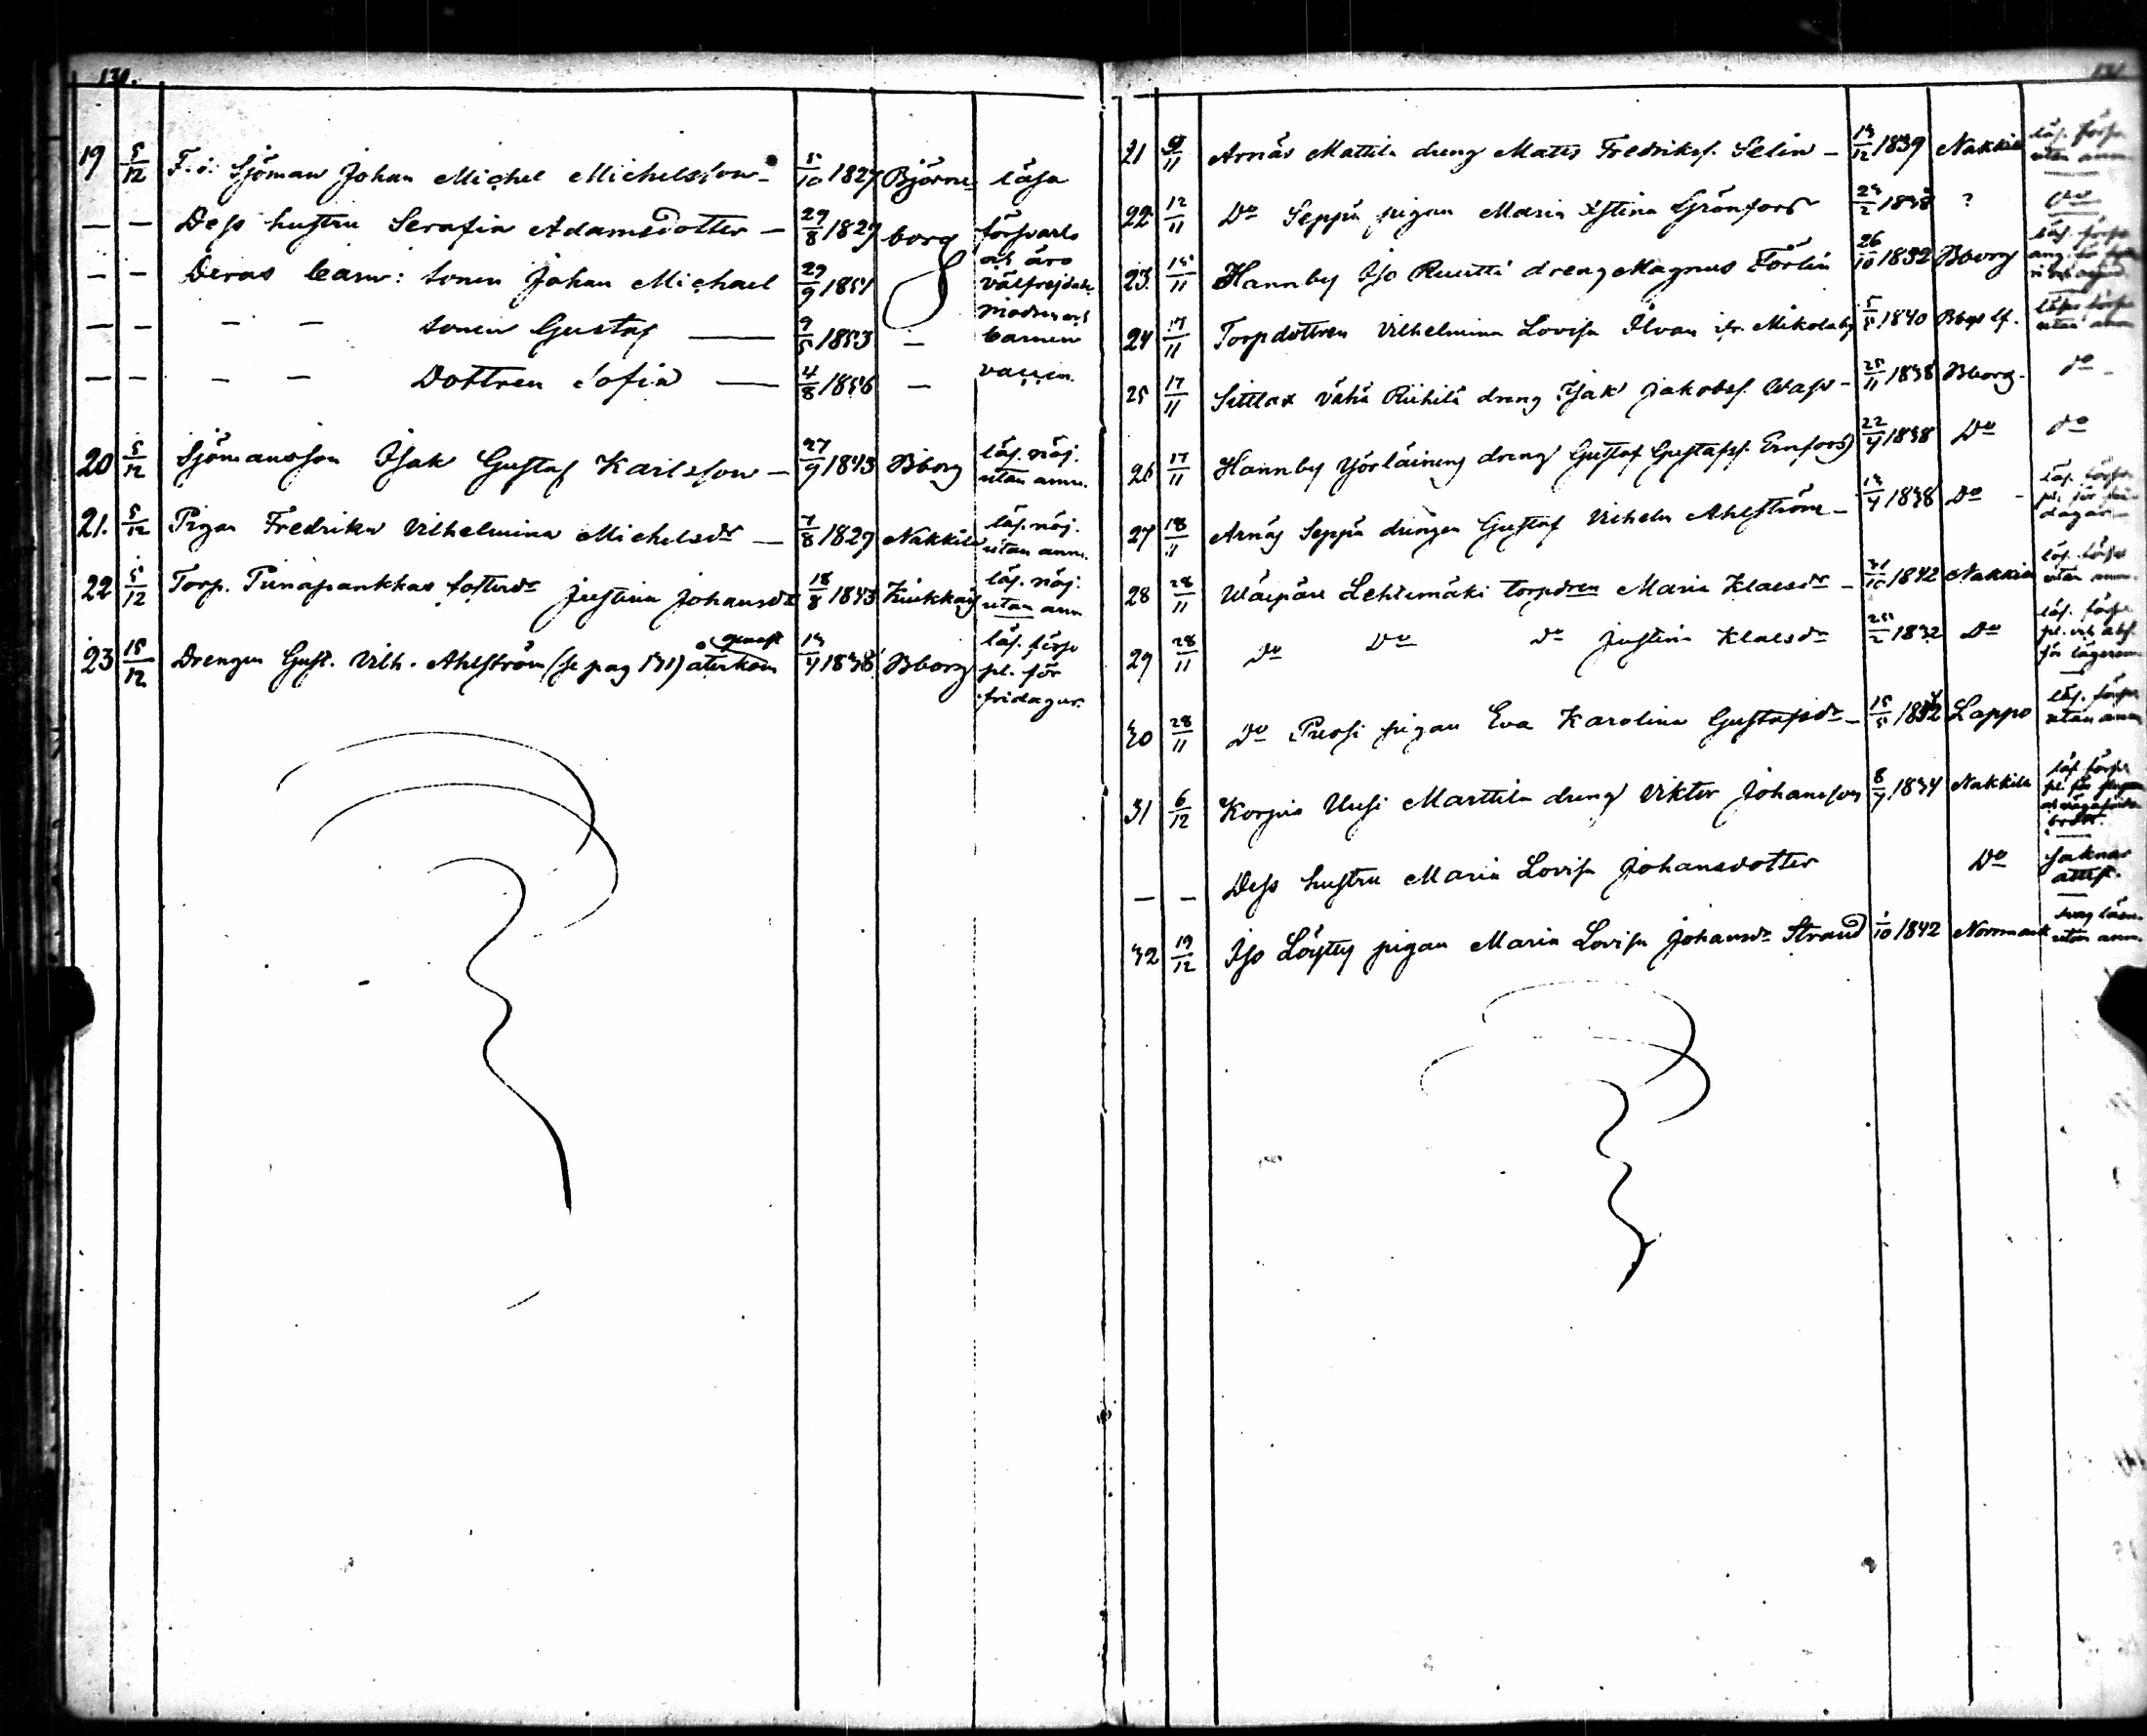 131.
19 5/12 F.d. Sjöman Johan Michel Michelsson - 5/10 1827 Björne- läsa
- - Dess hustru Serafia Adamsdotter - 27/8 1829 borg försvarl.
- - Deras barn: sonen Johan Michael 29/9 1851 och äro välfrejdade
- - - - sonen Gustaf - 9/5 1853 - modren och barnen
- - - - Dottren Sofia - 4/8 1856 - vaccin.
20 5/12 Sjömansson Isak Gustaf Karlsson - 27/9 1843 Bborg läs. nöj. utan anm.
21. 5/12 Pigan Fredrika Vilhelmina Michelsdr - 7/8 1829 Nakkila läs. nöj. utan anm.
22 5/12 Torp. Punapankkas fosterdr Justina Johansdr 18/8 1843 Kiukkais läs. nöj. utan anm
23 15/12 Drengen Gust. Vilh. Ahlström (se pag 131) återkom genast 13/4 1838 Bborg läs. förs. pl. för fridagar.
21 9/11 Arnäs Mattila dreng Matts Fredriks. Selin - 13/12 1839 Nakkila läs. förs. utan anm
22 12/11 Do Seppä pigan Maria Xstina Grönfors 24/2 1838 ? do
23. 15/11 Hannby Iso Ruutti dreng Magnus Förlin 26/10 1832 Bborg
24 17/11 Torpdottren Vilhelmina Lovisa Ilvan fr. Mikolaby 5/5 1840 Bbgs lf. läsa förs. utan anm
25 17/11 Sittlax Vähä Riihilä dreng Isak Jakobss. Wass - 25/11 1838 Bborg - do -
26 17/11 Hannby Yörläining dreng Gustaf Gustafss. Ernfors 22/4 1838 Do do
27 18/11 Arnäs Seppä drengen Gustaf Vilhelm Ahlström - 13/4 1838 Do - läs. förs. pl. för fri- dagar -
28 28/11 Wäspäre Lehtimäki torpdren Maria Klaesdr - 31/10 1842 Nakkila läs. förs. utan anm.
29 28/11 Do Do Do Justina Klaesdr 25/2 1832 Do läs. förs. pl. och abs. för lägersm
30 28/11 Do Prossi pigan Eva Karolina Gustafsdr - 15/5 Lappo läs. förs. utan anm
31 6/12 Korpis Uusi Marttila dreng Viktor Johansson 8/7 1834 Nakkila läs. förs. pl. för
- - Dess hustru Maria Lovisa Johansdotter Do saknar attest.
32 19/12 Iso Löytty pigan Maria Lovisa Johansdr Strand 1/10 1842 Norrmark svag läsn. utan anm.